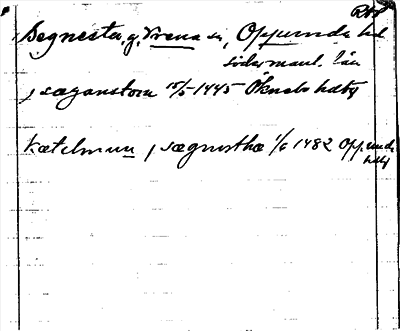 RA
Segnesta, g, Vrena sn, Oppunda hd
södermanl. län
j sæganstom 15/5 1445 Öknebo hdbr
Kætelmun j sægnstha 1/6 1482 Oppunda
hdbr